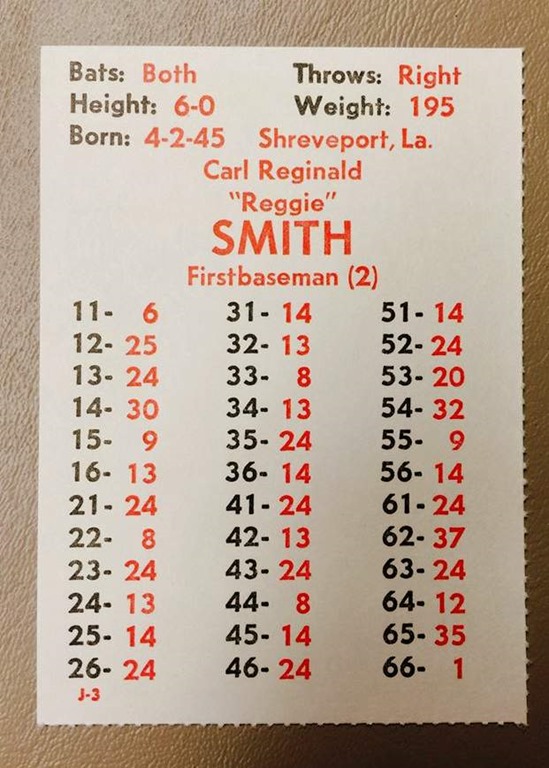 Bats: Both Throws: Right
Height: 6-0 Weight: 195
Born: 4-2-45 Shreveport, La.
Carl Reginald
"Reggie"
SMITH
Firstbaseman (2)
11- 6 31- 14 51- 14
12- 25 32- 13 52- 24
13- 24 33- 8 53- 20
14- 30 34- 13 54- 32
15- 9 35- 24 55- 9
16- 13 36- 14 56- 14
21- 24 41- 24 61- 24
22- 8 42- 13 62- 37
23- 24 43- 24 63- 24
24- 13 44- 8 64- 12
25- 14 45- 14 65- 35
26- 24 46- 24 66- 1
J-3